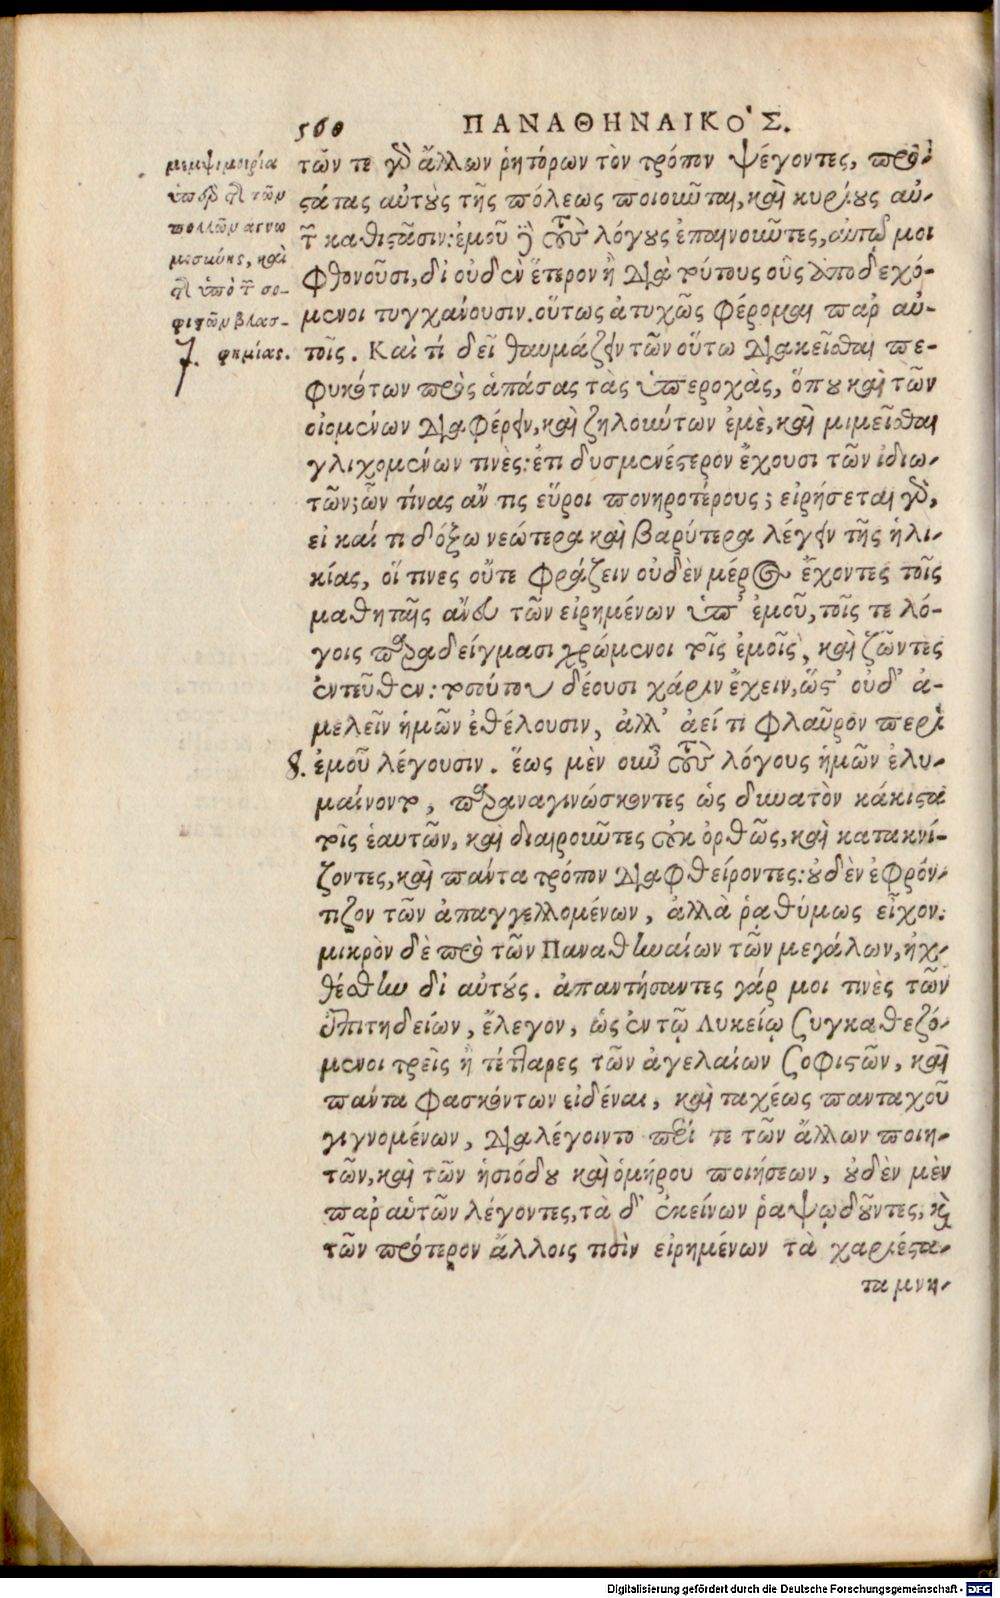 560 ΠΑΝΑΘΗΝΑΙΚΟ'Σ.
μεμψιμοιρία
ὑπὲρ τ τῶν
πολλῶν ἀγνω
μοσύνης, καὶ
τ ὑπὸ τ σο-
φιστῶν βλασ-
7. φημίας.
τῶν τε γὸ ἄλλων ῥητόρων τὸν τρόπον ψέγοντες, προ-
στάτας αὐτοὺς τῆς πόλεως ποιοῦνται, καὶ κυρίους αὑ-
τ καθιστᾶσιν: ἐμοῦ ἢ τοὺς λόγους ἐπαινοῦντες, αὐτῷ μοι
φθονοῦσι, δι οὐδὲν ἕτερον ἢ διὰ τούτους οὓς ἀποδεχό-
μενοι τυγχάνουσιν. οὕτως ἀτυχῶς φέρομαι παρ αὐ-
τοῖς. Καὶ τί δεῖ θαυμάζειν τῶν οὕτω διακεῖσθαι πε-
φυκότων πρὸς ἁπάσας τὰς ὑπεροχὰς, ὅπου καὶ τῶν
οἰομένων διαφέρειν, καὶ ζηλούντων ἐμὲ, καὶ μιμεῖσθαι
γλιχομένων τινὲς: ἔτι δυσμενέστερον ἔχουσι τῶν ἰδιω-
τῶν; ὧν τίνας ἄν τις εὕροι πονηροτέρους; εἰρήσεται γὸ,
εἰ καί τι δόξω νεώτερα καὶ βαρύτερα λέγειν τῆς ἡλι-
κίας, οἵ τινες οὔτε φράζειν οὐδὲν μέρος ἔχοντες τοῖς
μαθηταῖς ἄνευ τῶν εἰρημένων ὑπ' ἐμοῦ, τοῖς τε λό-
γοις παραδείγμασι χρώμενοι τοῖς ἐμοῖς, καὶ ζῶντες
ἐντεῦθεν: τοσούτου δέουσι χάριν ἔχειν, ὥστ' οὐδ' ἀ-
μελεῖν ἡμῶν ἐθέλουσιν, ἀλλ' ἀεί τι φλαῦρον περὶ
8. ἐμοῦ λέγουσιν. ἕως μὲν οὖν τοὺς λόγους ἡμῶν ἐλυ-
μαίνοντο, παραναγινώσκοντες ὡς δυνατὸν κάκιστα
τοῖς ἑαυτῶν, καὶ διαιροῦντες οὐκ ὀρθῶς, καὶ κατακνί-
ζοντες, καὶ πάντα τρόπον διαφθείροντες: οὐδὲν ἐφρόν-
τιζον τῶν ἀπαγγελλομένων, ἀλλὰ ῥαθύμως εἶχον.
μικρὸν δὲ πρὸ τῶν Παναθηναίων τῶν μεγάλων, ἠχ-
θέσθην δι αὐτούς. ἀπαντήσαντες γάρ μοι τινὲς τῶν
ἐπιτηδείων, ἔλεγον, ὡς ἐν τῷ Λυκείῳ συγκαθεζό-
μενοι τρεῖς ἢ τέτταρες τῶν ἀγελαίων σοφιστῶν, καὶ
πάντα φασκόντων εἰδέναι, καὶ ταχέως πανταχοῦ
γιγνομένων, διαλέγοιντο περί τε τῶν ἄλλων ποιη-
τῶν, καὶ τῶν ἡσιόδου καὶ ὁμήρου ποιήσεων, οὐδὲν μὲν
παρ αὑτῶν λέγοντες, τὰ δ' ἐκείνων ῥαψῳδοῦντες, καὶ
τῶν πρότερον ἄλλοις τισὶν εἰρημένων τὰ χαριέστα-
τα μνη-
Digitalisierung gefördert durch die Deutsche Forschungsgemeinschaft - DFG